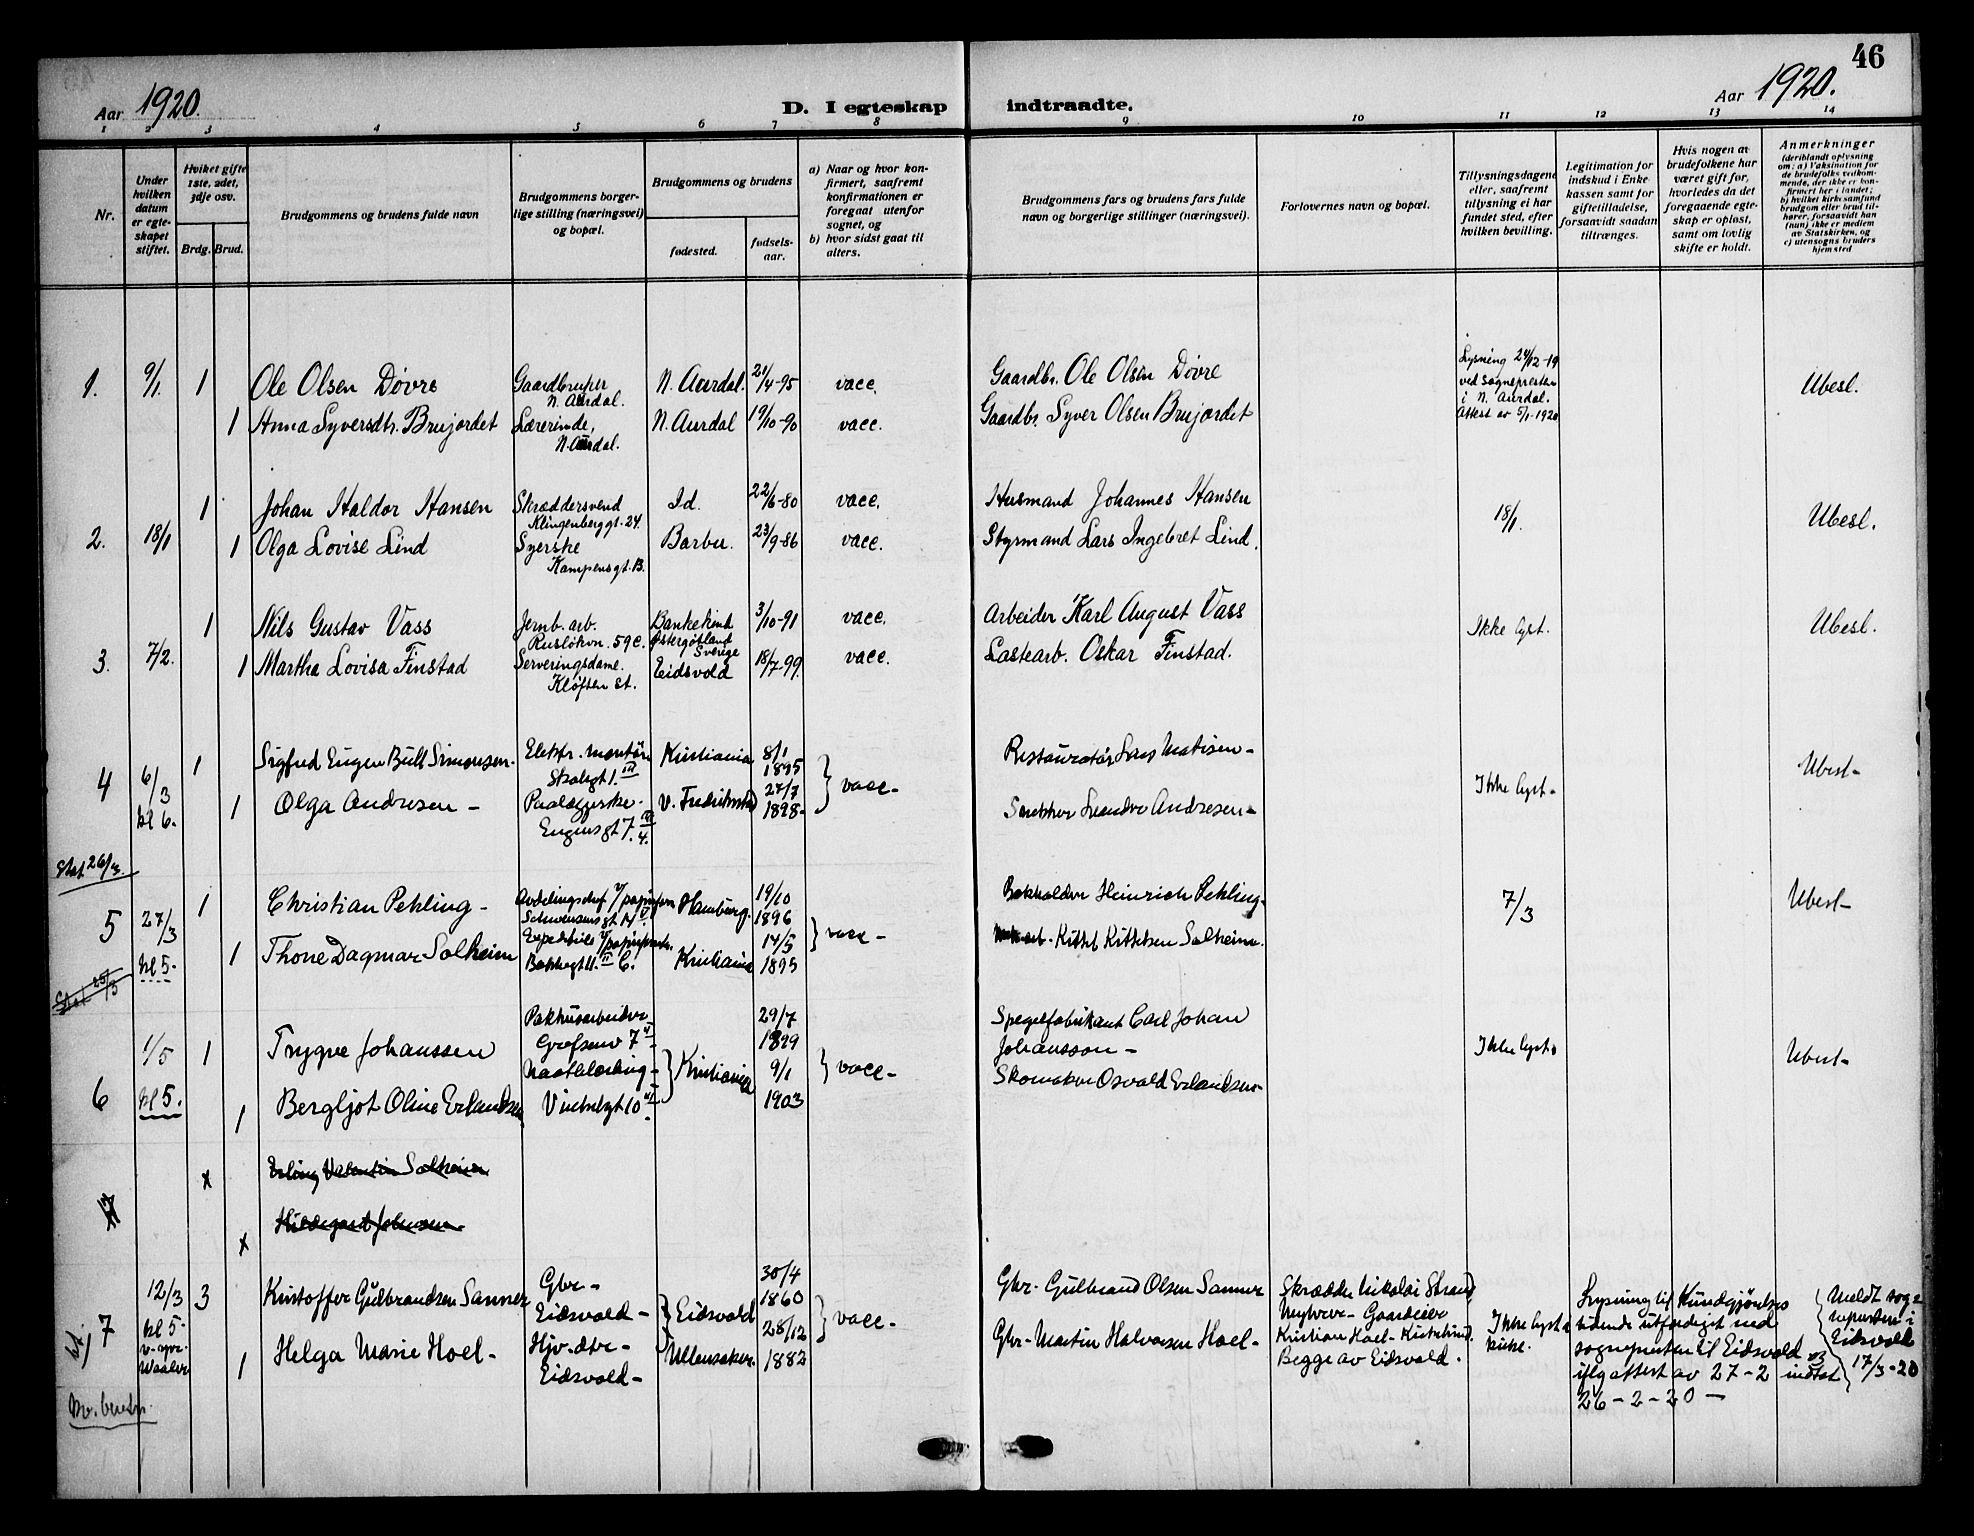 46
Aar 1920.
D. I egteskap indtraadte.
Aar 1920.
1 2 3 4 5 6 7 8 9 10 11 12 13 14
Nr.
Under hvilken datum er egteskapet stiftet.
Hvilket gifte 1ste, 2det, 3dje osv.
Brdg. Brud.
Brudgommens og brudens fulde navn
Brudgommens borgerlige stilling (næringsvei) og bopæl.
Brudgommens og brudens
fødested.
fødselsaar.
a) Naar og hvor konfirmert, saafremt konfirmationen er foregaat utenfor sognet, og
b) hvor sidst gaat til alters.
Brudgommens fars og brudens fars fulde navn og borgerlige stillinger (næringsvei).
Forlovernes navn og bopæl.
Tillysningsdagene eller, saafremt tillysning ei har fundet sted, efter hvilken bevilling.
Legitimation for indskud i Enkekassen samt for giftetilladelse, forsaavidt saadan tiltrænges.
Hvis nogen av brudefolkene har været gift før, hvorledes da det foregaaende egteskap er opløst, samt om lovlig skifte er holdt.
Anmerkninger
(deriblandt oplysning om: a) Vaksination for de brudefolks vedkommende, der ikke er konfirmert her i landet; b) hvilket kirkesamfund brudgom eller brud tilhører, forsaavidt han (hun) ikke er medlem av Statskirken, og c) utensogns bruders hjemsted
1. 9/1. 1 Ole Olsen Døvre Gaardbruker N. Aurdal. N. Aurdal. 21/4-95 vacc. Gaardbr. Ole Olsen Døvre
Lysning 24/12-19 ved sognepresten i N. Aurdal. Attest av 5/1-1920
Ubesl.
1 Anna Syversdtr. Brujordet Lærerinde, N. Aurdal. N. Aurdal 19/10-90 vacc. Gaardbr. Syver Olsen Brujordet
1 Johan Haldor Hansen Skræddersvend Klingenberggt. 24. Id. 22/6-80 vacc. Husmand Johannes Hansen 18/1. Ubesl.
2. 18/1 1 Olga Lovise Lind Syerske Kampensgt. 13. Barbu. 23/9-86 vacc. Styrmand Lars Ingebret Lind.
1 Nils Gustav Vass Jernb. arb. Rusløkvn. 59c. Bankekind Østergøtland Sverige 3/10-91 vacc. Arbeider Karl August Vass Ikke lyst. Ubesl.
3. 7/2. 1 Martha Lovisa Finstad Serveringsdame. Kløften st. Eidsvold 18/7-99. vacc. Lastearb. Oskar Finstad.
4 6/3 kl 6. 1 Sigfred Eugen Bull Simonsen. Elektr. montør Kristiania 8/1 1895 vacc- Restauratør Matisen- Ikke lyst- Ubesl-
1 Olga Andresen - Eugensgt 7. 4. V. Fredrikstad 27/7 1898- Andresen-
Stat. 26/3.
5 27/3 kl 5- 1 Christian Pehling- Hamburg. 19/10 1896 vacc- Bokholder Heinrich Pehling- 7/3 Ubesl-
1 Thone Dagmar Solheim Kristiania 14/5 1895 Kittel Kittelsen Solheim.
6 1/5 kl 5. 1 Trygve Johanssen Pakhusarbeider Kristiania 29/7 1899 vacc- Spegelfabrikant Carl Johan Johansson- Ikke lyst. Ubesl-
1 Bergljot Oline Erlandsen 9/1 1903 Skomaker Osvald Erlandsen-
7
x Erling Valentin Solheim
x Hildegard Johnsen
7 12/3 kl 5- 3 Kristoffer Gulbrandsen Sanner Gbr- Eidsvold- Eidsvold 30/4 1860 vacc- Gbr- Gulbrand Olsen Sanner
1 Helga Marie Hoel- Eidsvold- Ullensaker. 28/12 1882 Gbr- Martin Halvorsen Hoel-
Gaardeier Kristian Hoel- Begge av Eidsvold.
Ikke lyst i kirke.
Lysning til Kundgjørelsestidende utfærdiget ved sognepresten til Eidsvold ifølg attest av 27-2 indtat 26-2-20-
Meldt sognepresten i Eidsvold 17/3-20